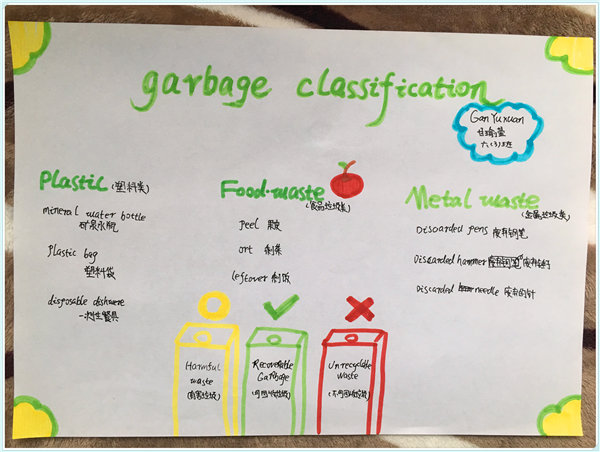 garbage classification
Gan Yuxuan
六(3)班
Plastic (塑料类)
mineral water bottle
矿泉水瓶
Plastic bag
塑料袋
disposable dishware
一次性餐具
Food waste
(食品垃圾类)
peel 果皮
ort 剩菜
leftover 剩饭
Metal waste
(金属垃圾类)
Discarded pens 废弃钢笔
Discarded hammer
Discarded needle
Harmful
waste
(有害垃圾)
Recoverable
Garbage
(可回收垃圾)
Unrecyclable
Waste
(不可回收垃圾)